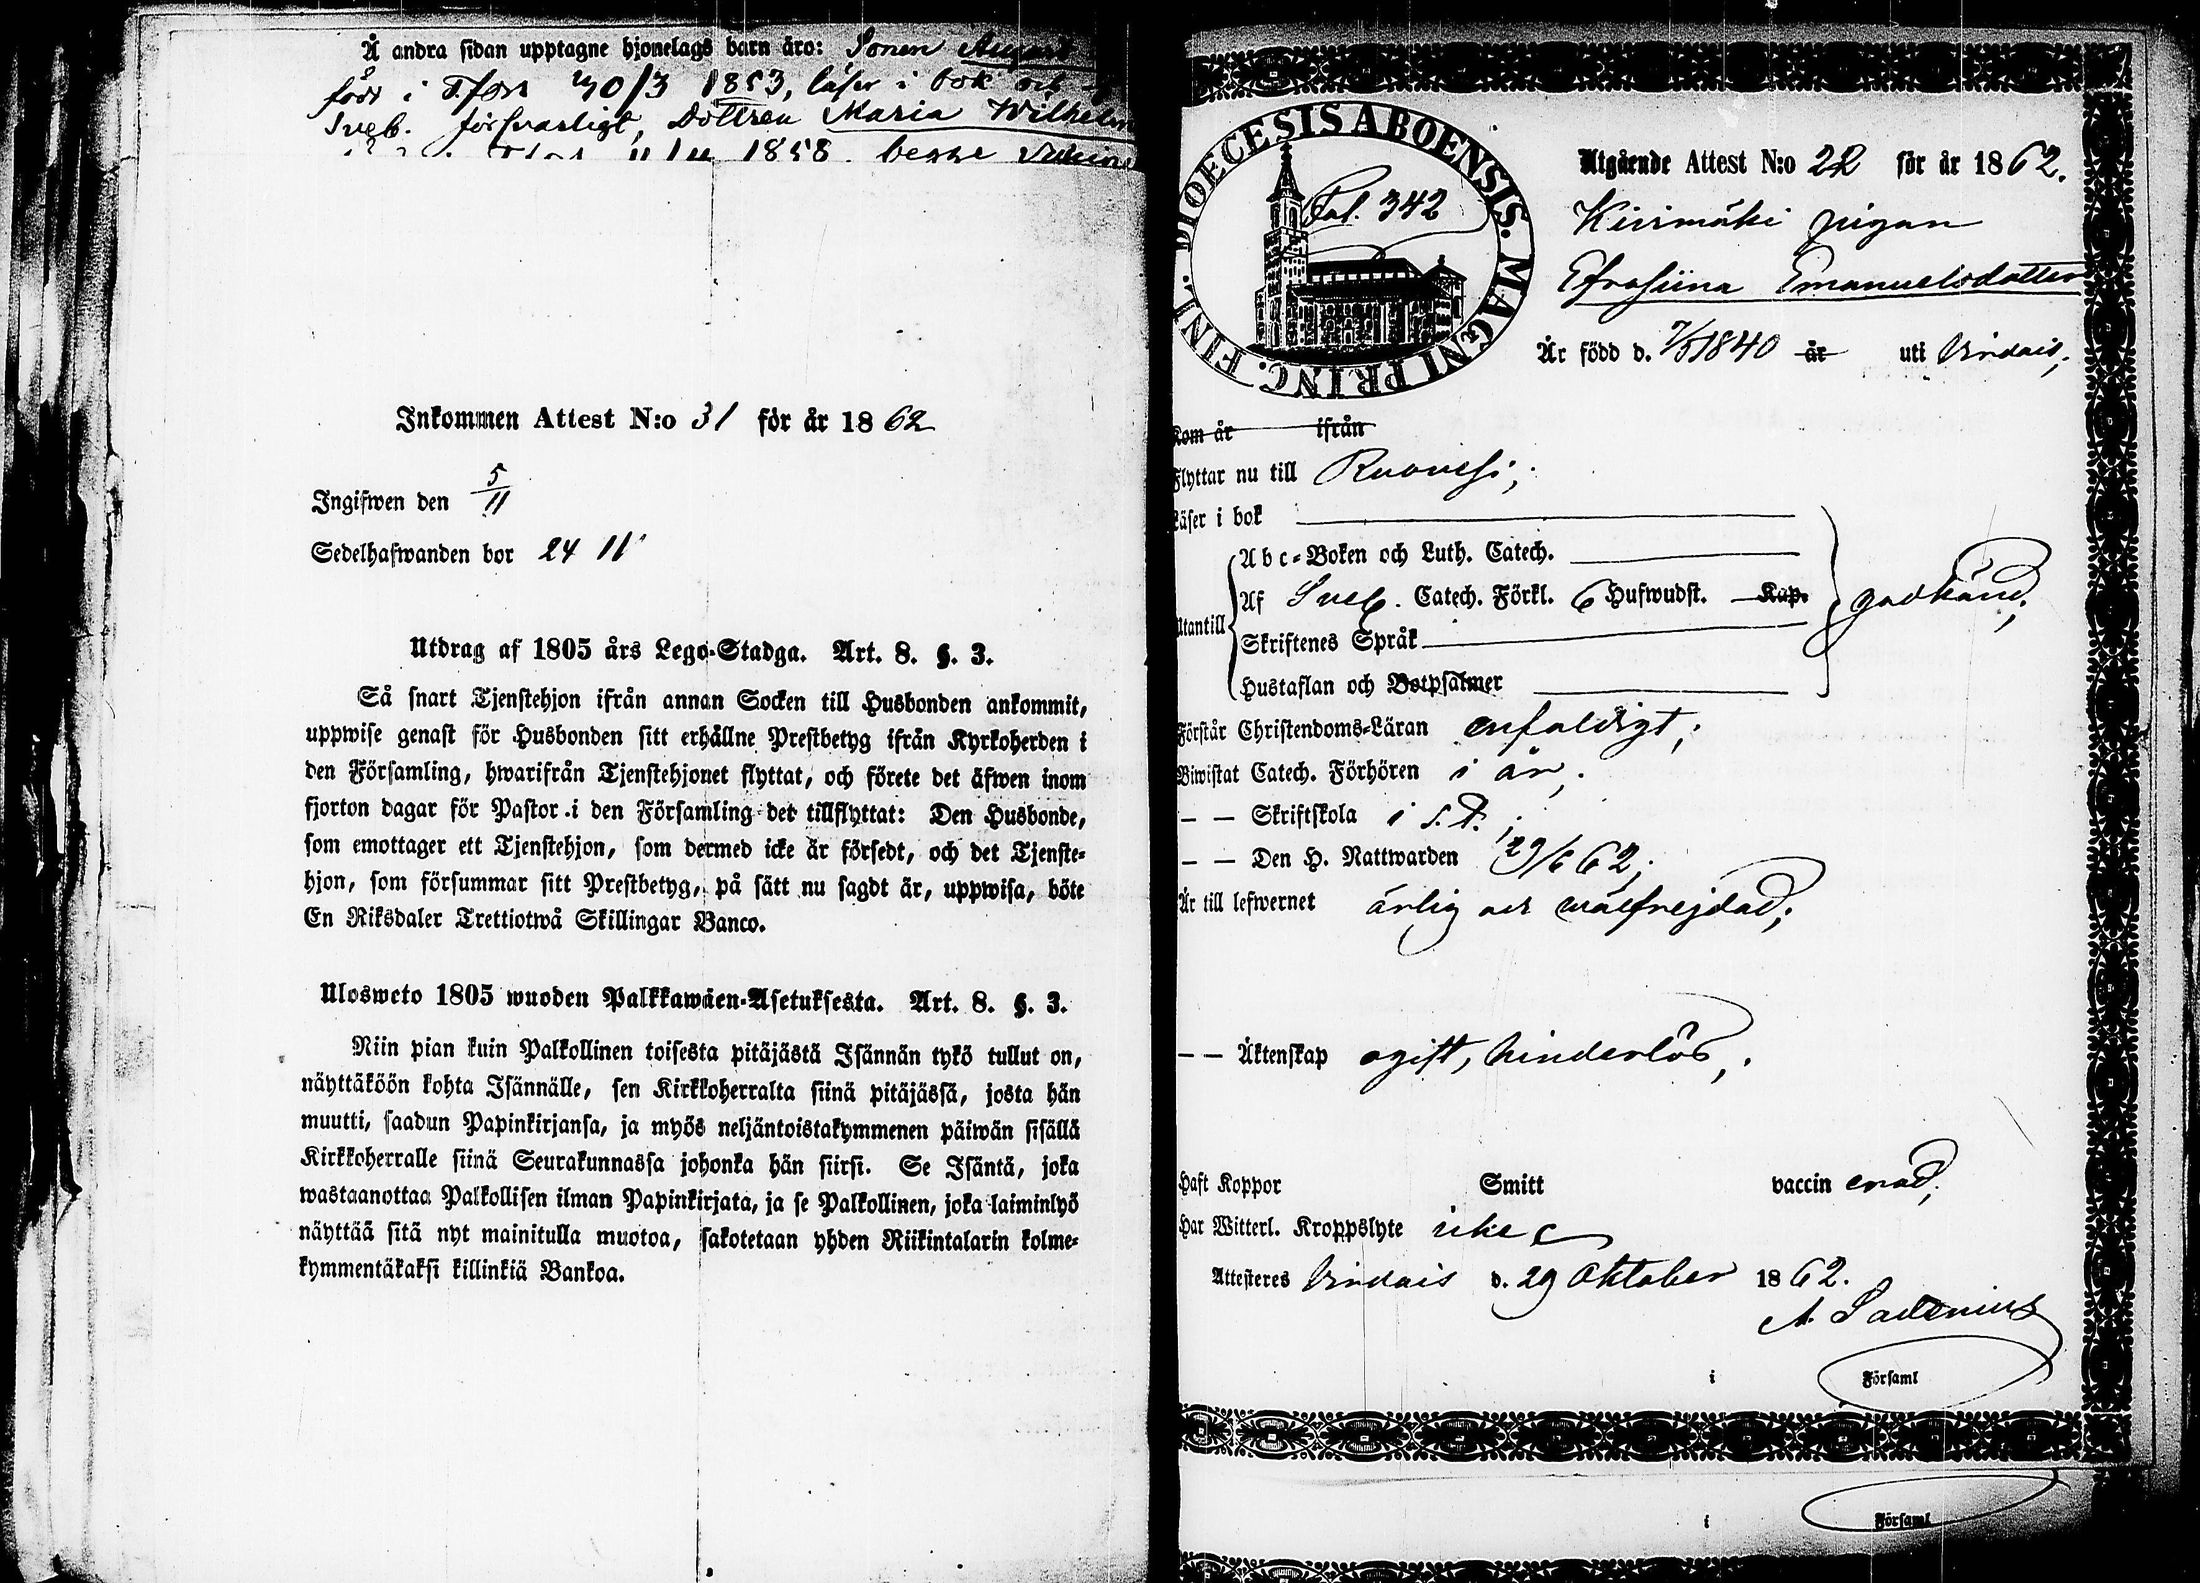 Å andra sidan upptagne hjonelags barn äro: Sonen August
född i T.fors 30/3 1853, läser i bok och
Sveb. försvarligt, Dottren Maria Wilhelm
1858. begge vaccine
Inkommen Attest N:o 31 för år 1862
Ingifwen den 5/11
Sedelhafwanden bor 24 11
Utdrag af 1805 års Lego-Stadga. Art. 8. §. 3.
Så snart Tjenstehjon ifrån annan Socken till Husbonden ankommit,
uppwise genast för Husbonden sitt erhållne Prestbetyg ifrån Kyrkoherden i
den Församling, hwarifrån Tjenstehjonet flyttat, och förete det äfwen inom
fjorton dagar för Pastor i den Församling det tillflyttat: Den Husbonde,
som emottager ett Tjenstehjon, som dermed icke är försedt, och det Tjenste-
hjon, som försummar sitt Prestbetyg, på sätt nu sagdt är, uppwisa, böte
En Riksdaler Trettiotwå Skillingar Banco.
Ulosweto 1805 wuoden Palkkawäen-Asetuksesta. Art. 8. §. 3.
Niin pian kuin Palkollinen toisesta pitäjästä Isännän tykö tullut on,
näyttäköön kohta Isännälle, sen Kirkkoherralta siinä pitäjässä, josta hän
muutti, saadun Papinkirjansa, ja myös neljäntoistakymmenen päiwän sisällä
Kirkkoherralle siinä Seurakunnassa johonka hän siirsi. Se Isäntä, joka
wastaanottaa Palkollisen ilman Papinkirjata, ja se Palkollinen, joka laiminlyö
näyttää sitä nyt mainitulla muotoa, sakotetaan yhden Riikintalarin kolme-
kymmentäkaksi killinkiä Bankoa.
DIOECESIS ABOENSIS. MAGNI PRINC. FINL.
Fol. 342
Utgående Attest N:o 22 för år 1862.
Kivimäki pigan
Efrosiina Emanuelsdotter
Är född d. 7/5 1840 år uti Virdois;
Kom år ifrån
Flyttar nu till Ruovesi;
Läser i bok
Utantill
Abc-Boken och Luth. Catech.
Af Sveb. Catech. Förkl. 6 Hufwudst. Kap. godkänd;
Skriftenes Språk
Hustaflan och Botpsalmer
Förstår Christendoms-Läran enfaldigt;
Biwistat Catech. Förhören i år;
— — Skriftskola i s. å.;
— — Den H. Nattwarden 29/6 62;
Är till lefwernet ärlig och wälfrejdad;
— — Äktenskap ogift, hinderlös;
Haft Koppor Smitt vaccin erad;
Har Witterl. Kroppslyte icke
Attesteres Virdois d. 29 Oktober 1862.
A. Sadenius
i Församl
i Församl